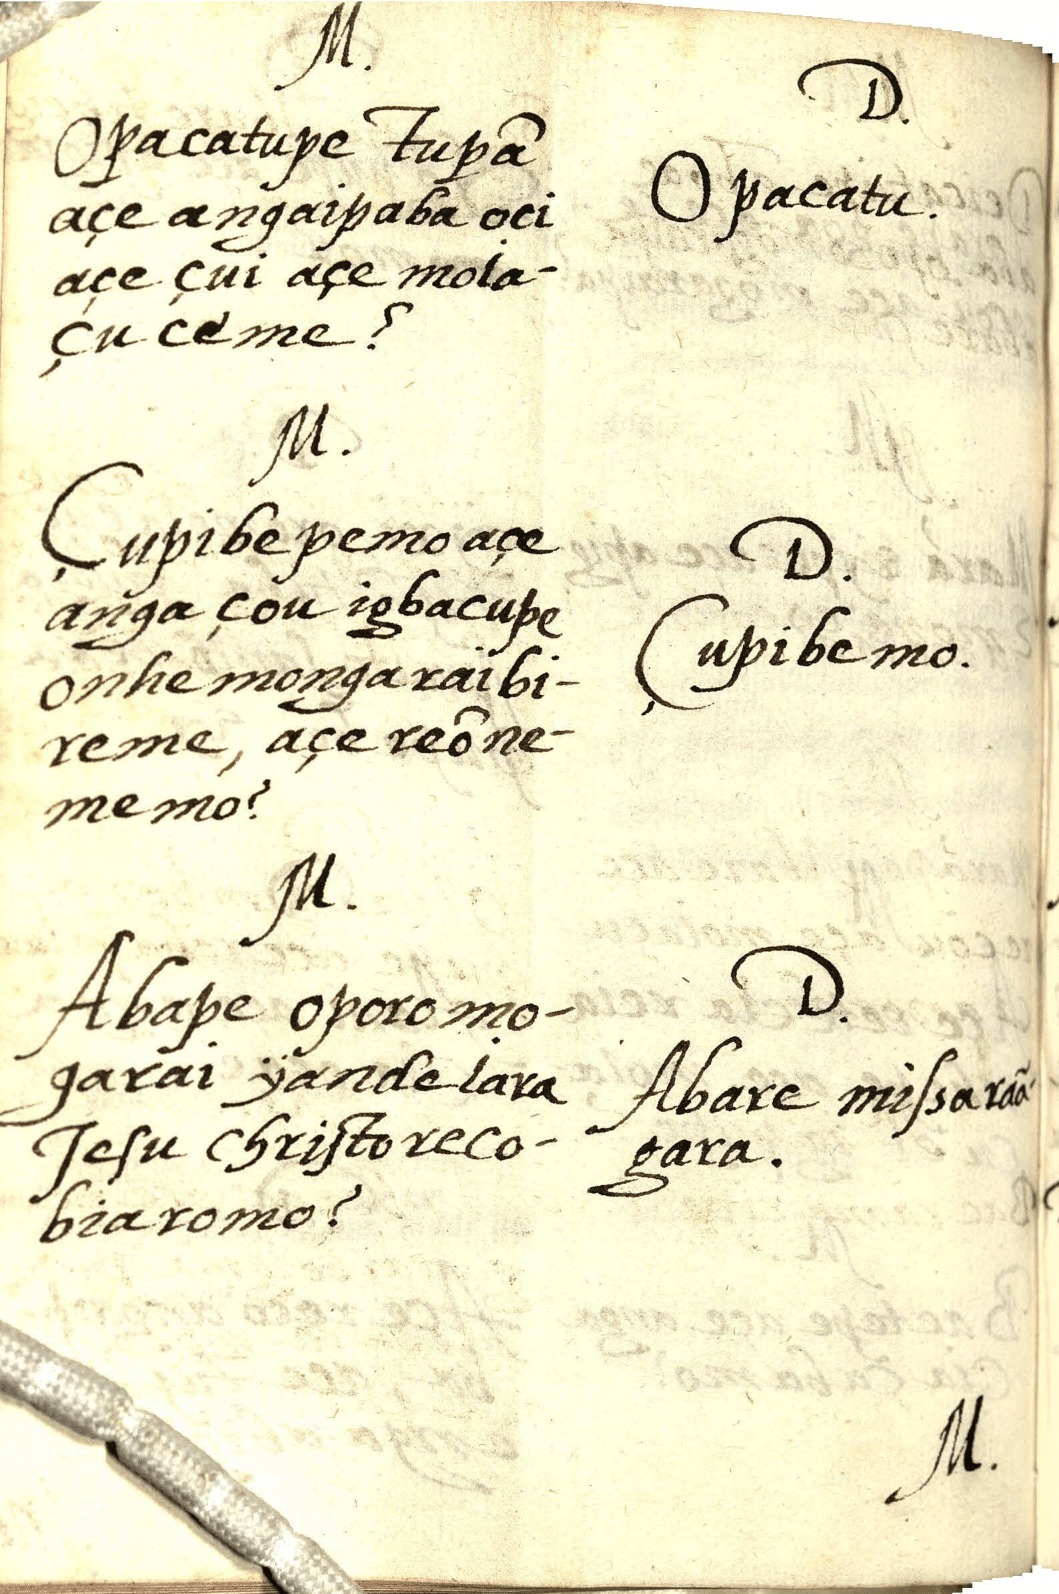 M.
Opacatupe Tupã
açe angaipaba oci
açe çui açe moia-
çuceme?
D.
Opacatu.
M.
Çupibepemo açe
anga çou igbacupe
onhemongaraibi-
reme, açe reõne-
memo?
D.
Çupibemo.
M.
Abape oporomo-
garai ÿandeiara
Jesu Christo reco-
biaromo?
D.
Abare missarãã-
gara.
M.